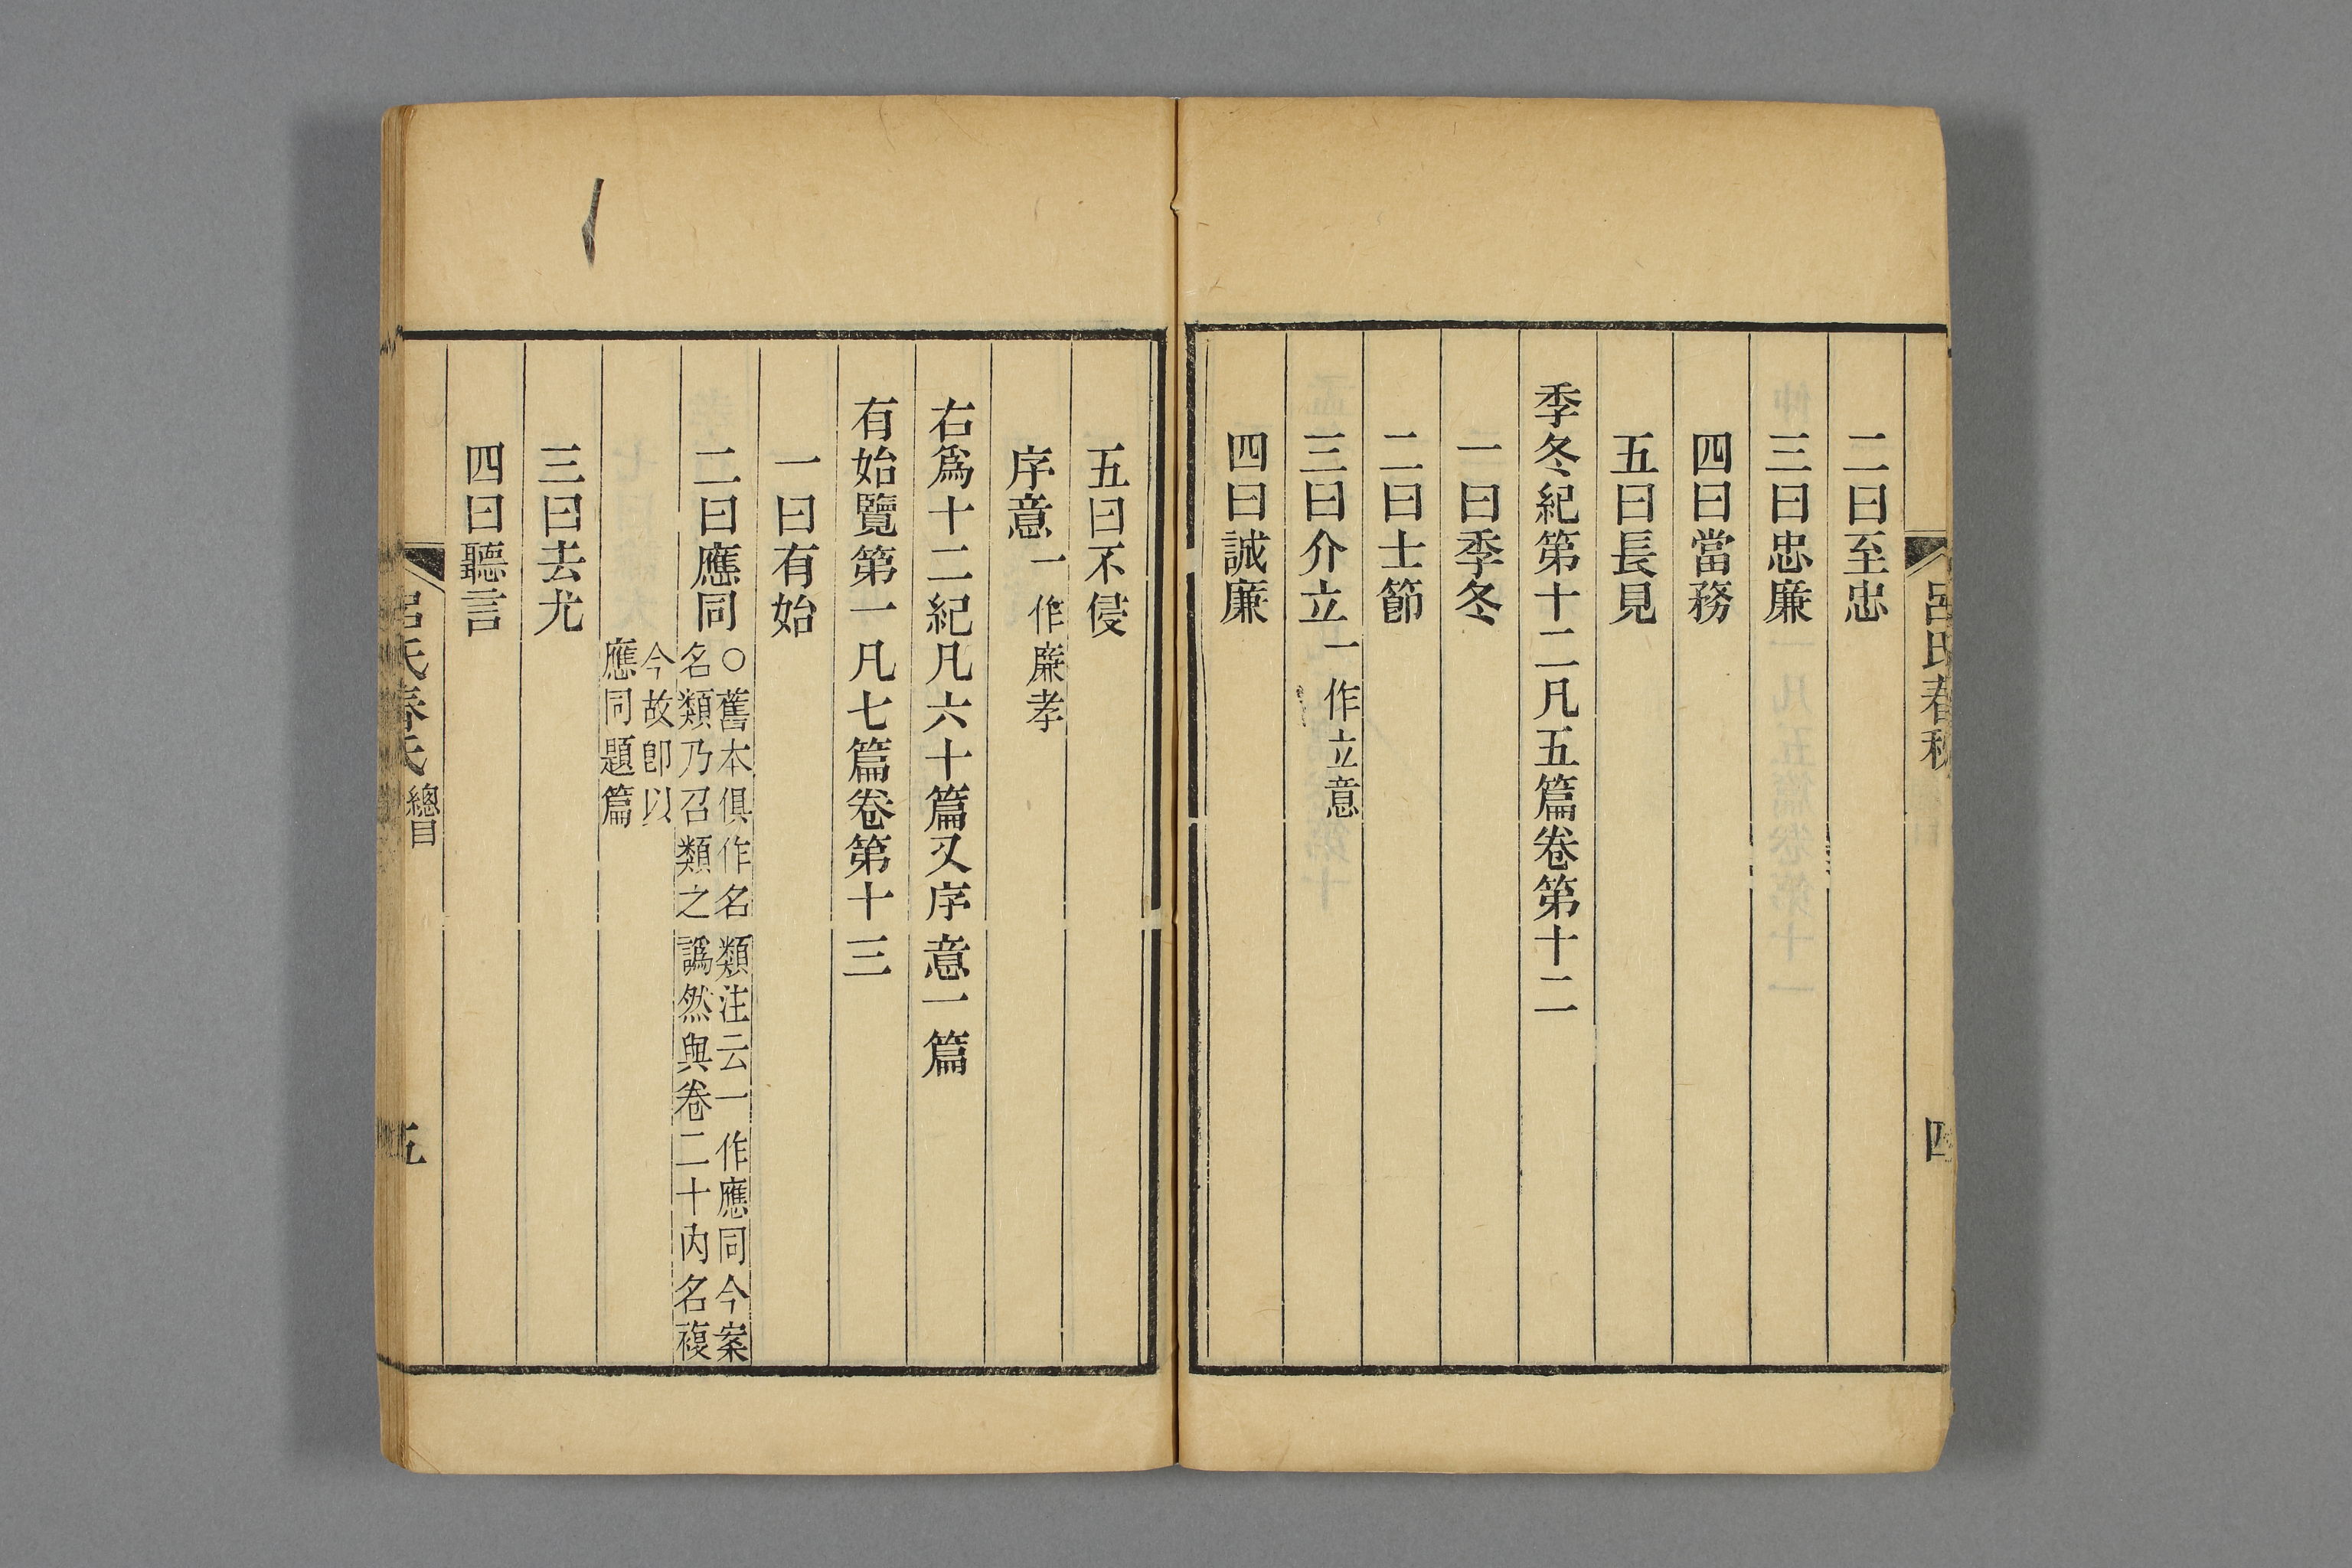 呂氏春秋
四
二曰至忠
三曰忠廉
四曰當務
五曰長見
季冬紀第十二凡五篇卷第十二
一曰季冬
二曰士節
三曰介立一作立意
四曰誠廉
五曰不侵
序意一作廉孝
右爲十二紀凡六十篇又序意一篇
有始覽第一凡七篇卷第十三
一曰有始
二曰應同
○舊本俱作名類注云一作應同今案
名類乃召類之譌然與卷二十內名複
今故卽以
應同題篇
三曰去尤
四曰聽言
呂氏春
總目
五